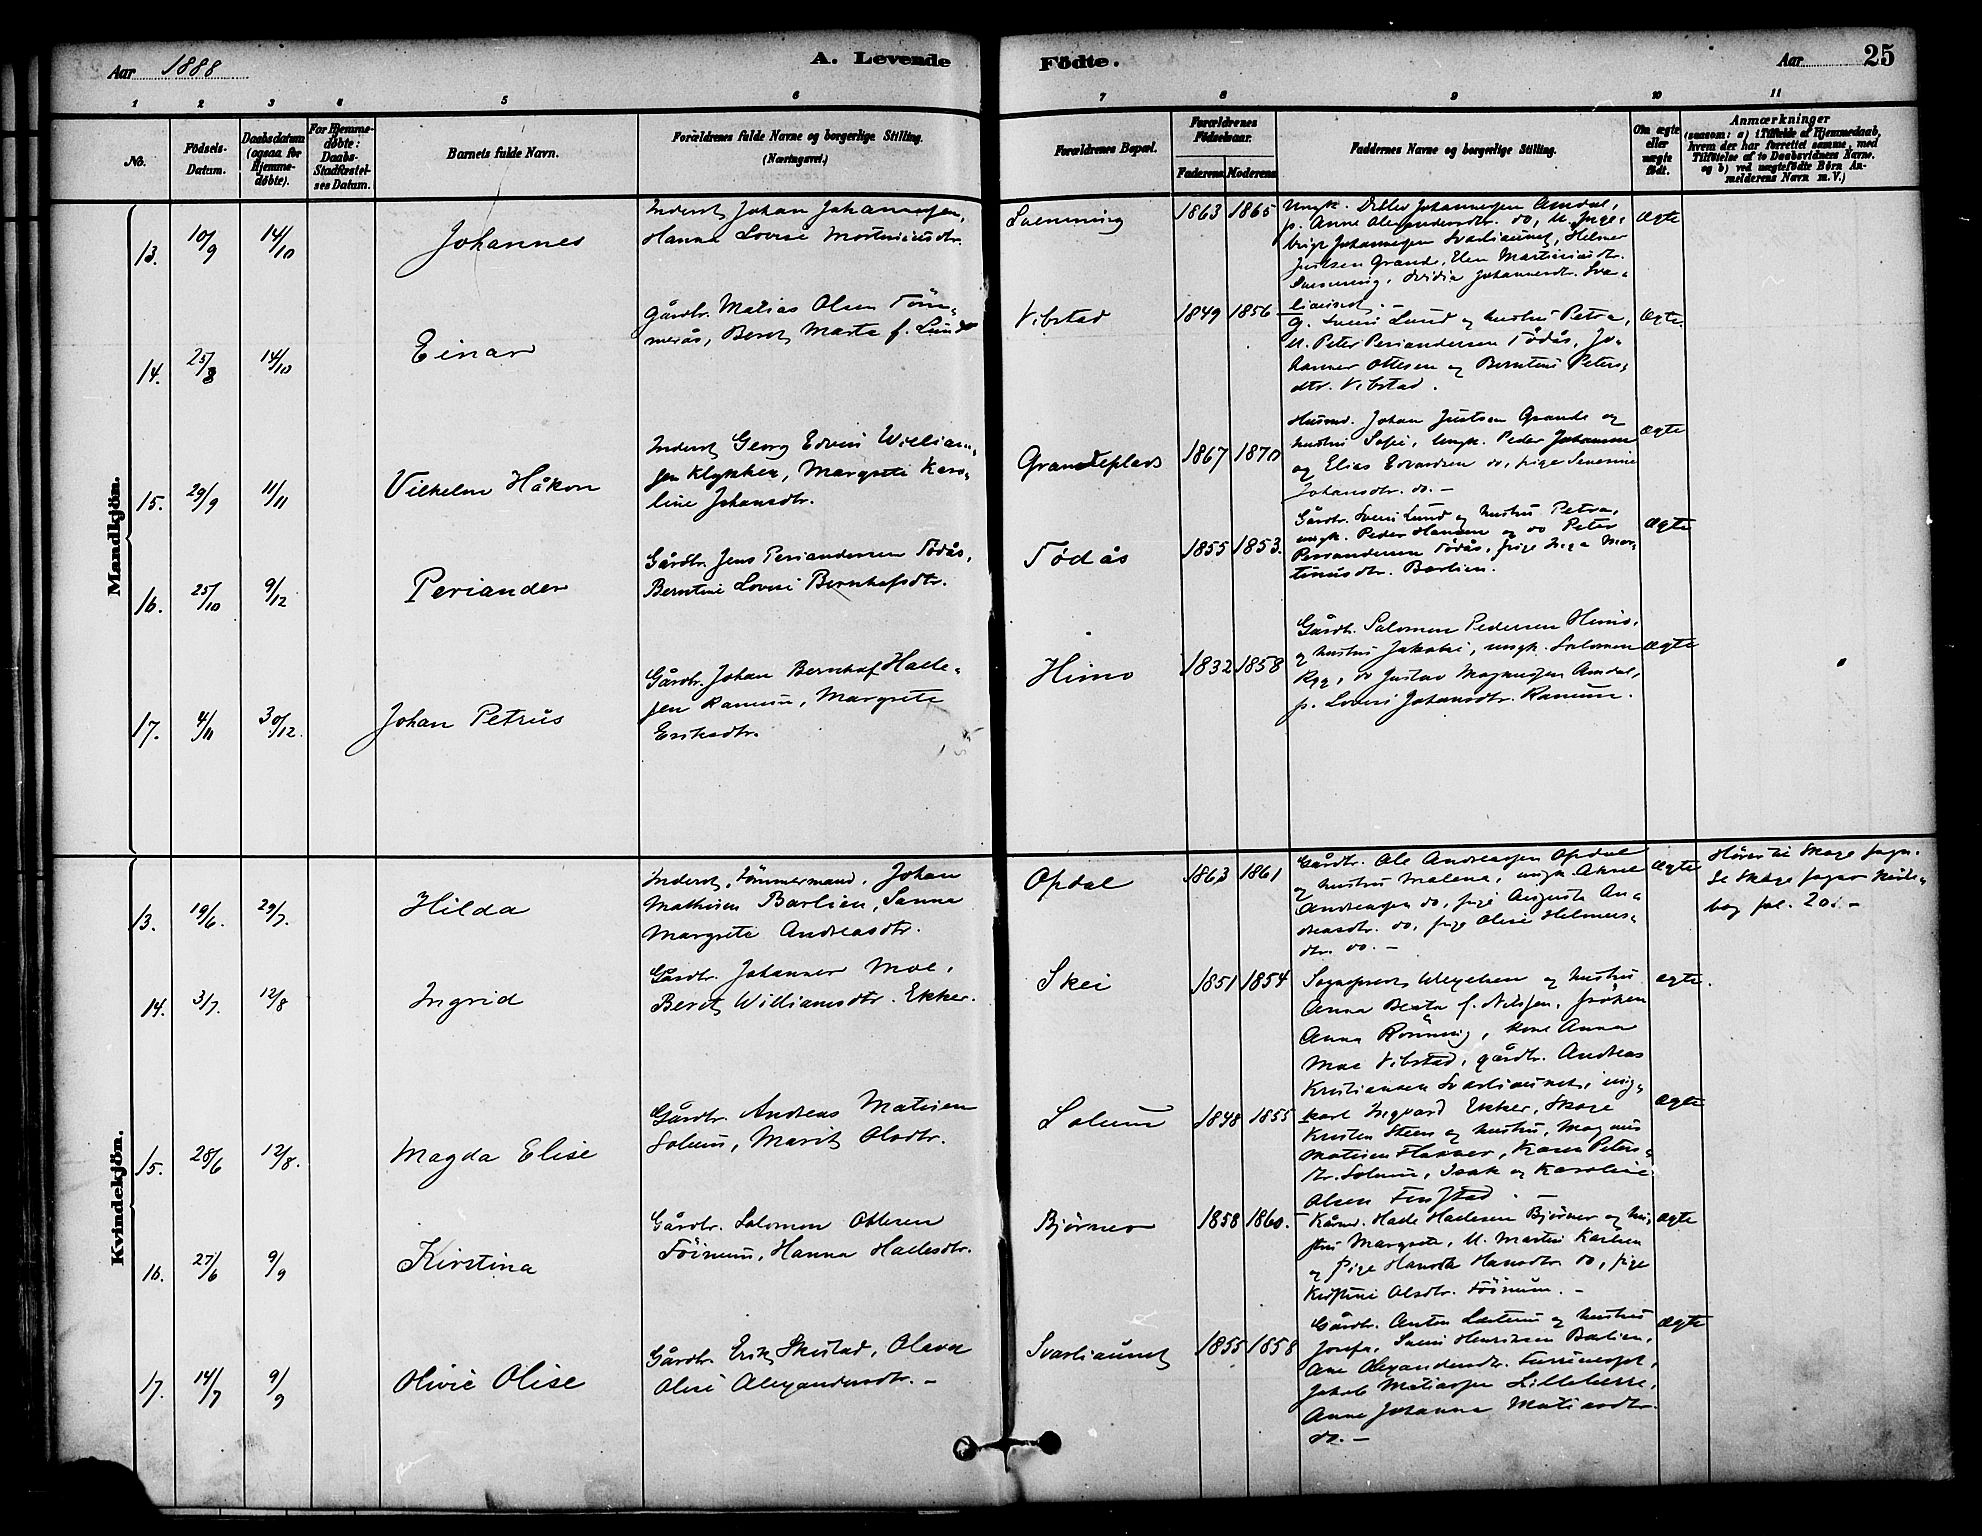 Aar 1888
A. Levende
Fødte.
Aar
25
1 2 3 4 5 6 7 8 9 10 11
No.
Fødsels-Datum.
Daabsdatum (ogsaa for Hjemmedøbte).
For Hjemmedøbte: Daabs-Stadfæstelses Datum.
Barnets fulde Navn.
Forældrenes fulde Navne og borgerlige Stilling.
(Næringsvei.)
Forældrenes Bopæl.
Forældrenes Fødselsaar.
Faderens. Moderens.
Faddernes Navne og borgerlige Stilling.
Om ægte eller uægte født.
Anmærkninger
(saasom: a) i Tilfælde af Hjemmedaab,
hvem der har forrettet samme, med
Tilføielse af to Daabsvidners Navne.
og b) ved uægtefødte Børn Anmelderens Navn m. V.)
Mandkjön.
13. 10/9 14/10 Johannes
Inderst Johan Johannessen,
Hanna Lovise Martiniusdtr.
1863 1865
Ungk. Johannessen Amdal,
p. Anne Alexandersdtr. do, U. Inge-
brigt Johannessen Svarliaunet, Helmer
Justsen Grande, Elen Martiniusdtr.
Johannesdtr. Svar-
liaunet.
ægte
14. 25/8 14/10 Einar
Gårdbr. Matias Olsen Töm-
merås, Beret Marta f. Lund
Vibstad
1849 1856
G. Svein Lund og hustru Petra,
U. Peter Periandersen Tödås, Jo-
hannes Ottesen og Berntine Peters-
dtr. Vibstad.
ægte.
15. 29/9 11/11 Vilhelm Håkon
Inderst Georg Edvin William-
sen Klykken, Margrete Karo-
line Johansdtr.
Grandeplads
1867 1870
Husmd. Johan Justsen Grande og
hustru Sofie, Ungk. Peder Johansen
og Elias Edvardsen do, pige Severine
Johansdtr. do. -
ægte
16. 25/10 9/12 Periander
Gårdbr. Jens Periandersen Tödås,
Berntine Lovise Bernhofsdtr.
Tödås
1855 1853.
Gårdbr. Svein Lund og hustru Petra,
ungk. Peder Hansen og do Peter
Periandersen Tödås, pige Inga Mar-
tinusdtr. Barlien.
ægte
17. 4/11 30/12. Johan Petrus
Gårdbr. Johan Bernhof Halle-
sen Ranum, Margrete
Eriksdtr.
Himo
1832 1858
Gårdbr. Salomon Pedersen Himo,
og hustru Jakobine, ungk. Salomon
Rygg, do Gustav Magnussen Amdal,
p. Lovise Johansdtr. Ranum.
ægte
Kvindekjön.
13. 19/6. 29/7. Hilda
Inderst, Tömmermand, Johan
Mathisen Barlien, Sanna
Margrete Andreasdtr.
Opdal
1863 1861
Gårdbr. Ole Andreassen Opdal
og hustru Malena, ungk. Arne
Andreassen do, pige Augusta An-
dreasdtr. do, pige Olise Helmers-
dtr. do. -
ægte
Hörer til Skage sogn.
Se Skage sogns Kirke-
bog fol. 20. -
14. 3/7. 12/8 Ingrid
Gårdbr. Johannes Moe,
Beret Williamsdtr. Ekker.
Skei
1851 1854
Sogneprest Wegelsen og hustru
Anna Beata f. Nilssen, fröken
Anna Rönning, kone Anna
Moe Vibstad, gårdbr. Andreas
Kristiansen Svarliaunet, ung-
karl Ingvard Ekker, Skage
ægte.
15. 28/6 12/8. Magda Elise
Gårdbr. Andreas Matisen
Solum, Marit Olsdtr.
Solum
1848 1855
Kristen Steen og hustru, Magnus
Matisen Flasnes, Karen Peters-
dtr. Solum, Isak og Karoline
Olsen Finstad.
ægte
16. 27/6 9/9 Kirstina
Gårdbr. Salomon Ottesen
Föinum, Hanna Hallesdtr.
Björnes
1858 1860.
Kårmd. Halle Hallesen Björnes og hu-
stru Margrete, U. Martin Karlsen
og pige Hansdtr. do, pige
Kristine Olsdtr. Föinum. -
ægte
17. 14/7 9/9 Olivie Olise
Gårdbr. Erik Skistad, Olava
Olise Alexandersdtr. -
Svarliaunet
1855 1858
Gårdbr. Anton og hustru
Josefa, Svein Henriksen Barlien,
Ane Alexandersdtr.
Jakob Matiassen Lilleberre,
Anne Johanna Matiasdtr.
do. -
ægte